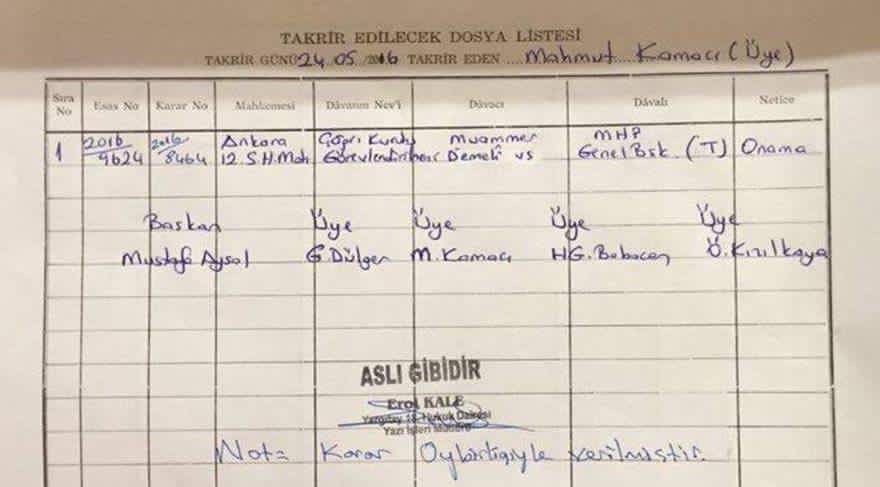 TAKRİR EDİLECEK DOSYA LİSTESİ
TAKRİR GÜNÜ 24.05./2016 TAKRİR EDEN ...Mahmut....Kamacı (Üye)
Sıra No Esas No Karar No Mahkemesi Dâvanın Nev'i Dâvacı Dâvalı Netice
1 2016/9624 2016/8464 Ankara 12.S.H.Mah Çağrı Kurulu Muammer Demeli vs MHP Genel Bşk. (T) Onama
Başkan Üye Üye Üye Üye
Mustafa Aysal G.Dülger M.Kamacı HG.Babacan Ö.Kızılkaya
ASLI GİBİDİR
Erol KALE
Yargıtay 18. Hukuk Dairesi
Yazı İşleri Müdürü
Not= Karar Oybirliğiyle verilmiştir.